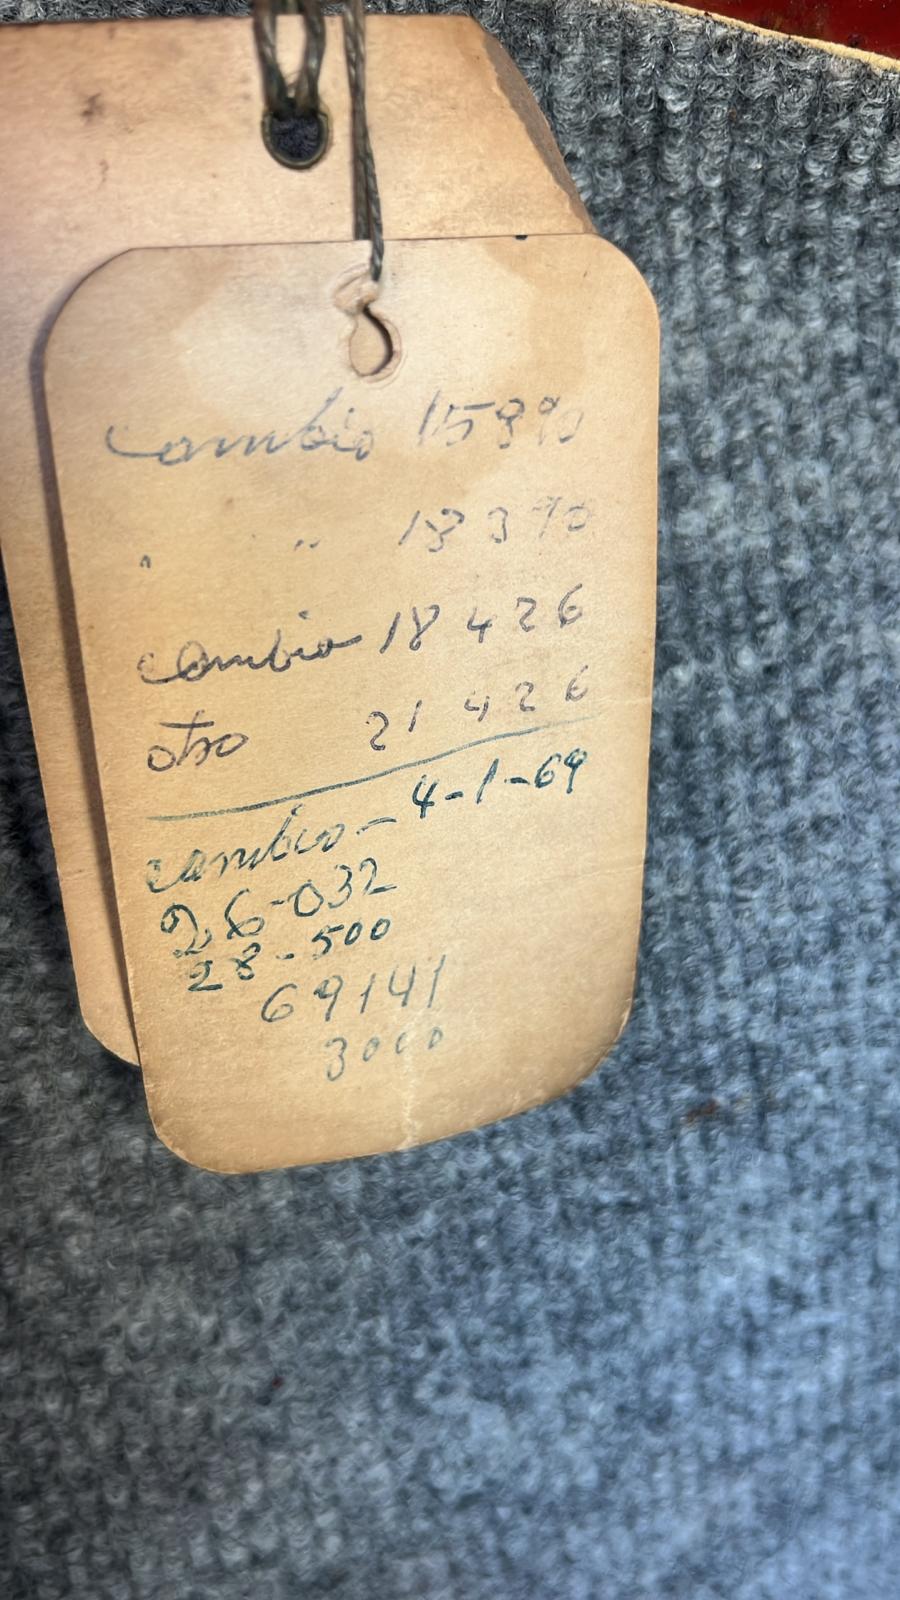 cambio 15390
" " 18390
cambio 18 426
otro 21 426
cambio - 4-1-69
26-032
28-500
69141
3000